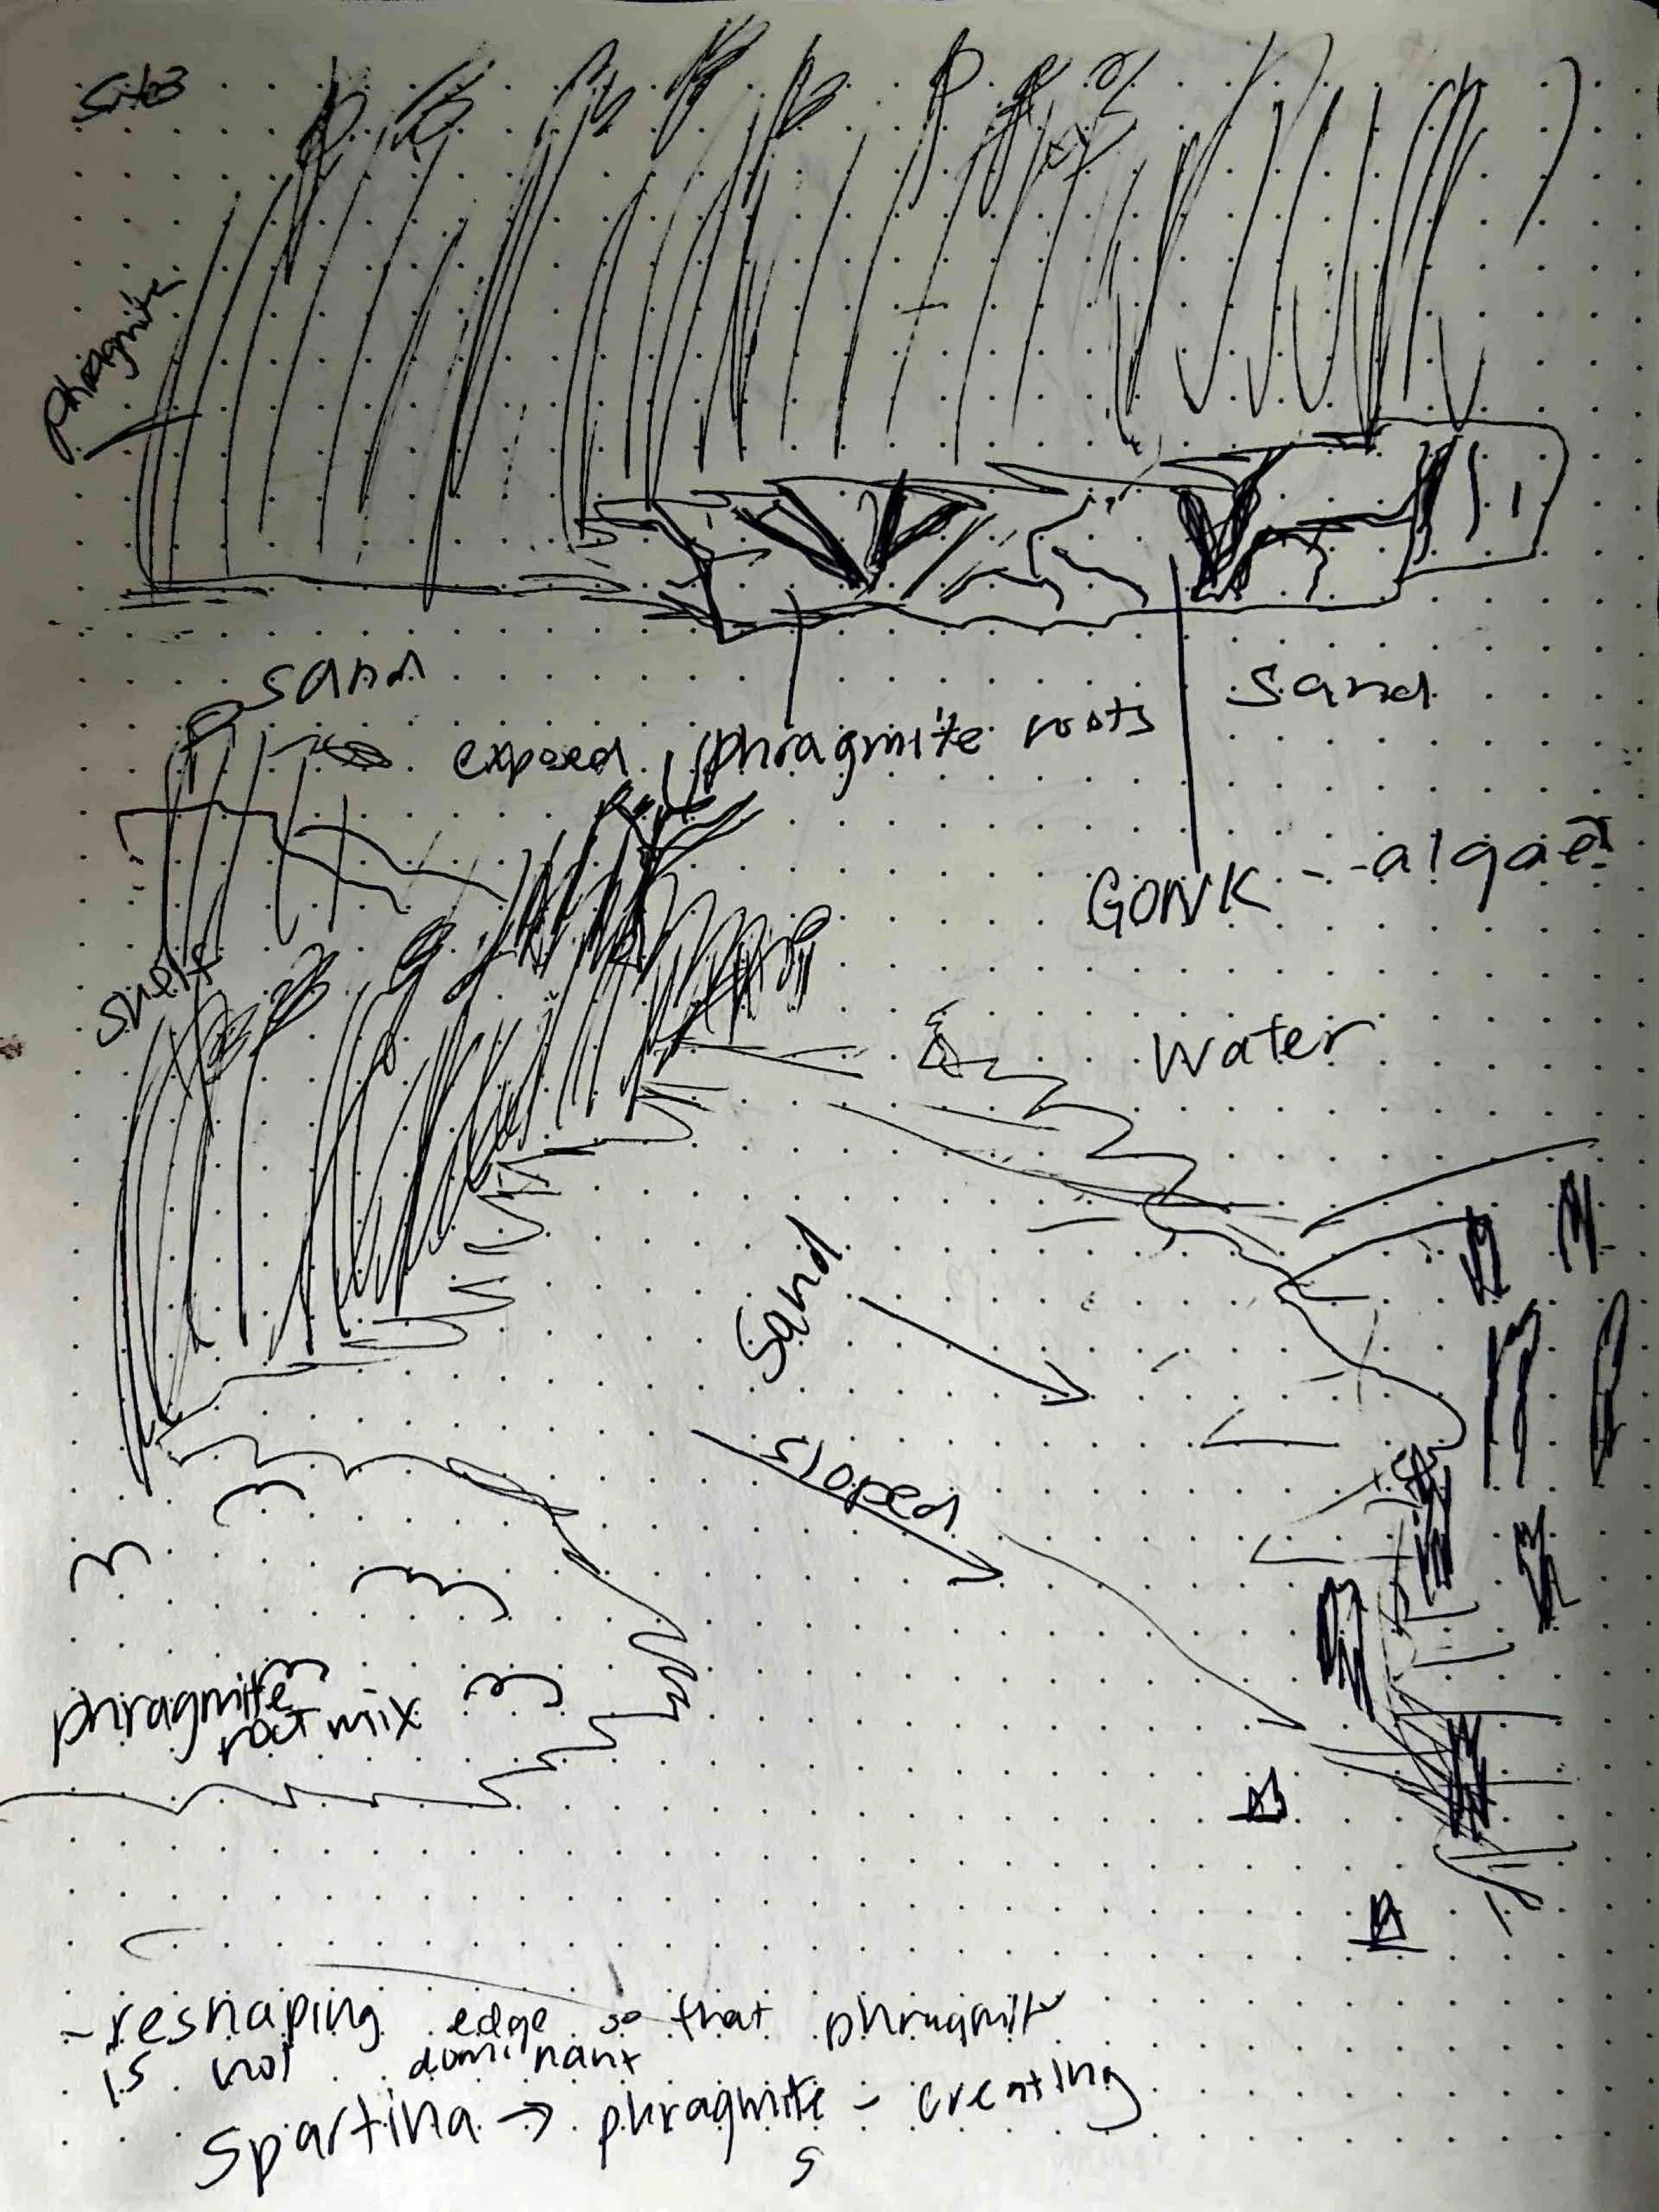 Site 3
phragmite
sand
sand
exposed phragmite roots
GONK - - algae?
shelf
water
sand
sloped
phragmite
root mix
- reshaping edge so that phragmite
is not dominant
Spartina → phragmite - creating
s